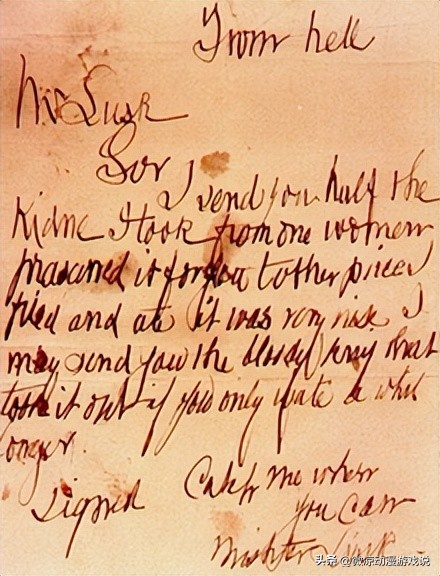 From hell
Mr Lusk
Sor
I send you half the
Kidne I took from one women
prasarved it for you tother piece I
fried and ate it was very nise I
may send you the bloody knif that
took it out if you only wate a whil
longer.
signed
Catch me when
you can
Mishter Lusk.
头条 @微凉动漫游戏说